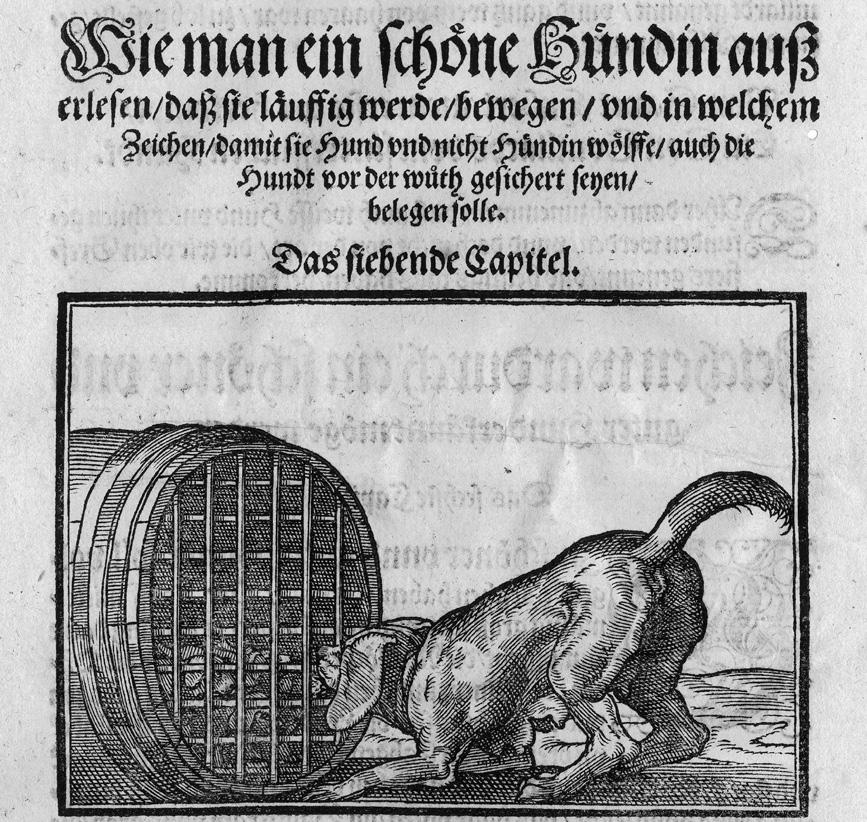 Wie man ein schöne Hündin auß
erlesen/daß sie läuffig werde/bewegen/ vnd in welchem
Zeichen/damit sie Hund vnd nicht Hündin wölffe/ auch die
Hundt vor der wůth gesichert seyen/
belegen solle.
Das siebende Capitel.